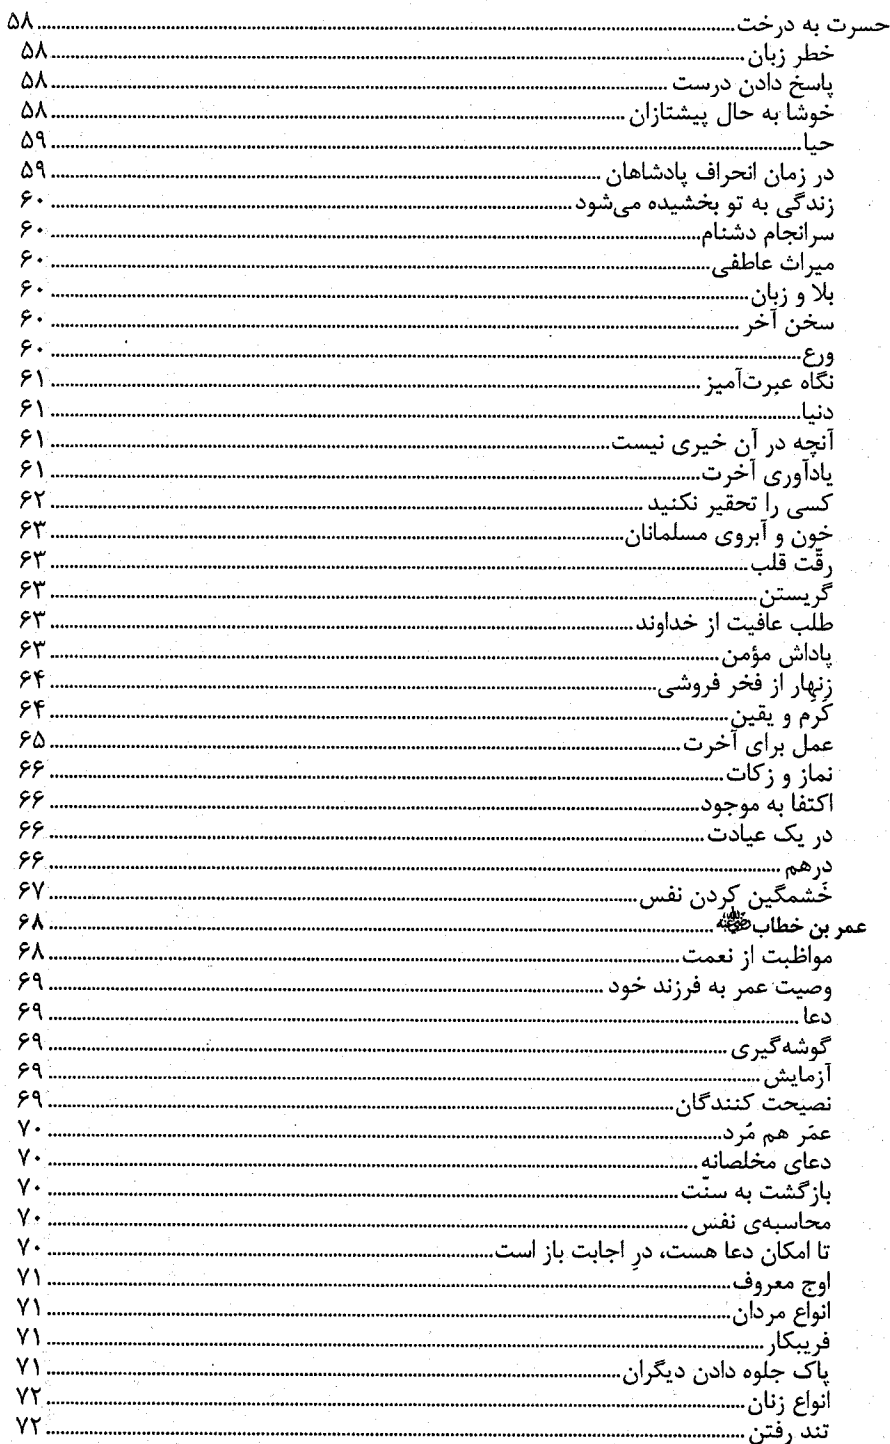 حسرت به درخت ........ ۵۸
خطر زبان ........ ۵۸
پاسخ دادن درست ........ ۵۸
خوشا به حال پیشتازان ........ ۵۸
حیا ........ ۵۹
در زمان انحراف پادشاهان ........ ۵۹
زندگی به تو بخشیده می‌شود ........ ۶۰
سرانجام دشنام ........ ۶۰
میراث عاطفی ........ ۶۰
بلا و زبان ........ ۶۰
سخن آخر ........ ۶۰
ورع ........ ۶۰
نگاه عبرت‌آمیز ........ ۶۱
دنیا ........ ۶۱
آنچه در آن خیری نیست ........ ۶۱
یادآوری آخرت ........ ۶۱
کسی را تحقیر نکنید ........ ۶۲
خون و آبروی مسلمانان ........ ۶۳
رقّت قلب ........ ۶۳
گریستن ........ ۶۳
طلب عافیت از خداوند ........ ۶۳
پاداش مؤمن ........ ۶۳
زنهار از فخر فروشی ........ ۶۴
کَرم و یقین ........ ۶۴
عمل برای آخرت ........ ۶۵
نماز و زکات ........ ۶۶
اکتفا به موجود ........ ۶۶
در یک عیادت ........ ۶۶
درهم ........ ۶۶
خَشمگین کردن نفس ........ ۶۷
عمر بن خطاب ........ ۶۸
مواظبت از نعمت ........ ۶۸
وصیت عمر به فرزند خود ........ ۶۹
دعا ........ ۶۹
گوشه‌گیری ........ ۶۹
آزمایش ........ ۶۹
نصیحت کنندگان ........ ۶۹
عمَر هم مُرد ........ ۷۰
دعای مخلصانه ........ ۷۰
بازگشت به سنّت ........ ۷۰
محاسبه‌ی نفس ........ ۷۰
تا امکان دعا هست، درِ اجابت باز است ........ ۷۰
اوج معروف ........ ۷۱
انواع مردان ........ ۷۱
فریبکار ........ ۷۱
پاک جلوه دادن دیگران ........ ۷۱
انواع زنان ........ ۷۲
تند رفتن ........ ۷۲